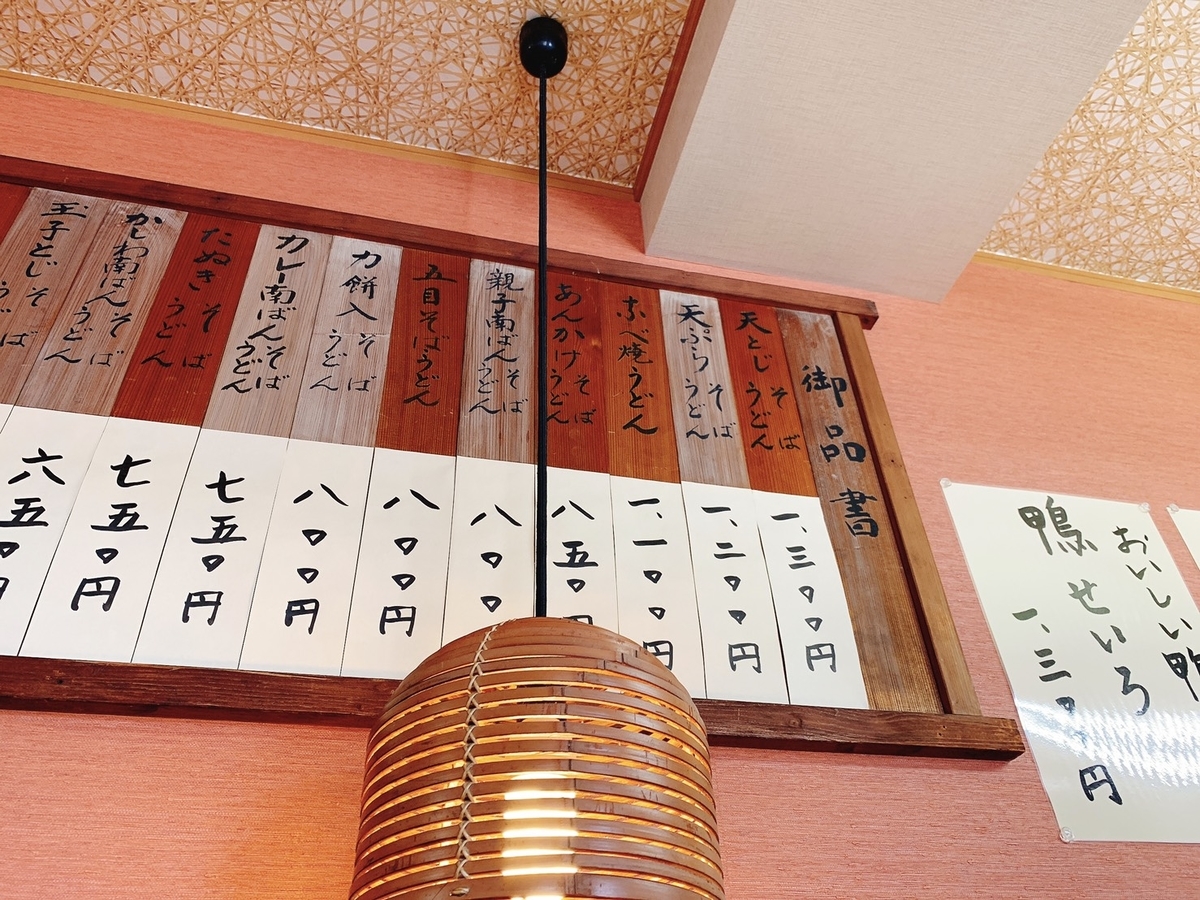 御品書
天とじ そば うどん
一、三〇〇円
天ぷら そば うどん
一、二〇〇円
なべ焼うどん
一、一〇〇円
あんかけ そば うどん
八五〇円
親子南ばん そば うどん
八〇〇
五目そばうどん
八〇〇円
力餅入 そば うどん
八〇〇円
カレー南ばん そば うどん
七五〇円
たぬき そば うどん
七五〇円
かしわ南ばん そば うどん
六五〇円
玉子とじ そば うどん
円
おいしい鴨
鴨せいろ
一、三〇〇円